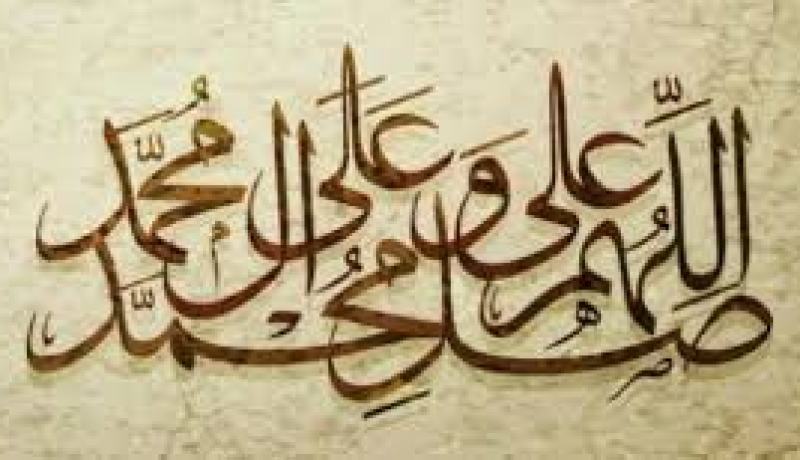 اللّٰهم صل على محمد وعلى آل محمد